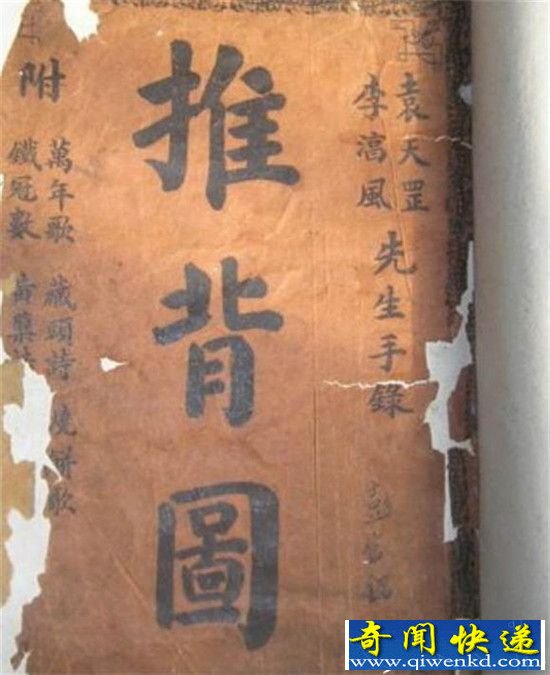 袁天罡
李淳風
先生手錄
推背圖
附
萬年歌 藏頭詩 燒餅歌
鐵冠數 黃蘗
奇闻快递
www.qiwenkd.com